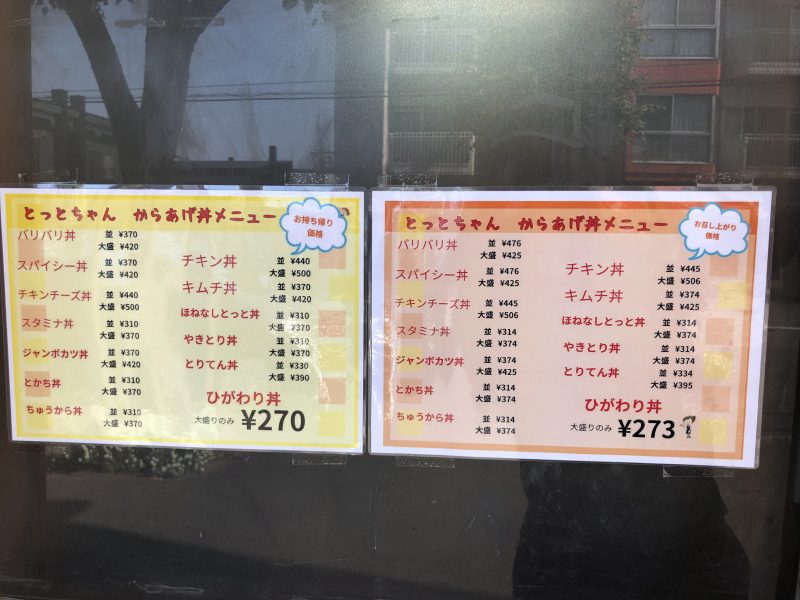 とっとちゃん からあげ丼メニュー
お持ち帰り
価格
バリバリ丼 並 ¥370
大盛 ¥420
スパイシー丼 並 ¥370
大盛 ¥420
チキンチーズ丼 並 ¥440
大盛 ¥500
スタミナ丼 並 ¥310
大盛 ¥370
ジャンボカツ丼 並 ¥370
大盛 ¥420
とかち丼 並 ¥310
大盛 ¥370
ちゅうから丼 並 ¥310
大盛 ¥370
チキン丼 並 ¥440
大盛 ¥500
キムチ丼 並 ¥370
大盛 ¥420
ほねなしとっと丼 並 ¥310
大盛 ¥370
やきとり丼 並 ¥310
大盛 ¥370
とりてん丼 並 ¥330
大盛 ¥390
ひがわり丼
大盛りのみ ¥270
とっとちゃん からあげ丼メニュー
お召し上がり
価格
バリバリ丼 並 ¥476
大盛 ¥425
スパイシー丼 並 ¥476
大盛 ¥425
チキンチーズ丼 並 ¥445
大盛 ¥506
スタミナ丼 並 ¥314
大盛 ¥374
ジャンボカツ丼 並 ¥374
大盛 ¥425
とかち丼 並 ¥314
大盛 ¥374
ちゅうから丼 並 ¥314
大盛 ¥374
チキン丼 並 ¥445
大盛 ¥506
キムチ丼 並 ¥374
大盛 ¥425
ほねなしとっと丼 並 ¥314
大盛 ¥374
やきとり丼 並 ¥314
大盛 ¥374
とりてん丼 並 ¥334
大盛 ¥395
ひがわり丼
大盛りのみ ¥273